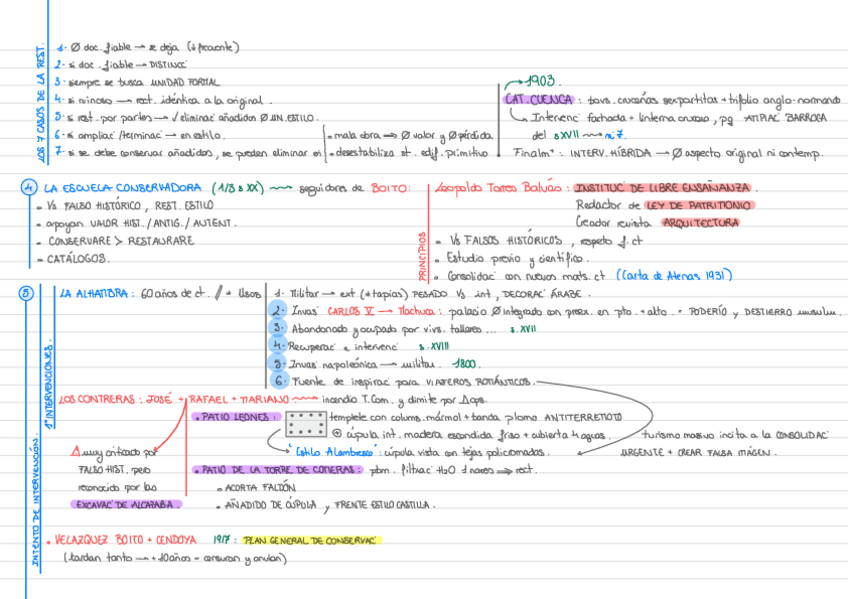 LOS 7 CASOS DE LA REST.
1- Ø doc. fiable → se deja (↓ frecuente)
2- si doc. fiable → DISTINCᵒ
3- siempre se busca UNIDAD FORMAL
4- si ruinoso → rest. idéntica a la original.
5- si rest. por partes → √ eliminar añadidos Ø UN. ESTILO.
6- si ampliacᵒ/terminacᵒ → en estilo.
7- si se debe conservar añadidos, se pueden eliminar si
- mala obra → Ø valor y Ø pérdida
- desestabiliza st. edif. primitivo
→ 1903.
CAT. CUENCA: bovs. cruceñas sexpartitas + trifolio anglo-normando
Intervencᵒ fachada + linterna crucero, pq AMPLIACᵒ BARROCA
del s XVII → nº 7.
Finalmᵗᵉ: INTERV. HÍBRIDA → Ø aspecto original ni contemp.
4 LA ESCUELA CONSERVADORA (1/3 s XX) seguidores de BOITO:
- Vs FALSO HISTÓRICO, REST. ESTILO
- apoyan VALOR HIST./ANTIG./AUTENT.
- CONSERVARE > RESTAURARE
- CATÁLOGOS.
Leopoldo Torres Balbás: INSTITUCᵒ DE LIBRE ENSEÑANZA.
Redactor de LEY DE PATRIMONIO
Creador revista ARQUITECTURA
PRINCIPIOS
- Vs FALSOS HISTÓRICOS, respeto f. ct
- Estudio previo y científico.
- Consolidacᵒ con nuevos mats. ct (Carta de Atenas 1931)
5 LA ALHAMBRA: 60 años de ct. // + Usos
1- Militar → ext (+tapias) PESADO Vs int, DECORACᵒ ÁRABE.
2- Invasᵒ CARLOS V → Machuca: palacio Ø integrado con preex. en pto. + alto. = PODERÍO y DESTIERRO musulm.
3- Abandonado y ocupado por vivs. talleres ... s. XVII
4- Recuperacᵒ e intervencᵒ s. XVIII
5- Invasᵒ napoleónica → militar. 1800.
6- Fuente de inspiracᵒ para VIAJEROS ROMÁNTICOS.
INTENTO DE INTERVENCIÓN.
1º INTERVENCIONES.
LOS CONTRERAS: JOSÉ + RAFAEL + MARIANO incendio T.Com. y dimite por Δops.
- PATIO LEONES: templete con colums. mármol + banda plomo ANTITERREMOTO
⊕ cúpula int. madera escondida friso + cubierta 4 aguas.
"Estilo Alambresco": cúpula vista con tejas policromadas.
turismo masivo incita a la CONSOLIDACᵒ
URGENTE + CREAR FALSA IMÁGEN.
⚠ muy criticado por
FALSO HIST., pero
reconocido por las
EXCAVACᵒ DE ALCAZABA.
- PATIO DE LA TORRE DE COMERAS: pbm. filtracᵒ H2O 1 naves ⇒ rect.
- ACORTA FALDÓN
- AÑADIDO DE CÚPULA y FRENTE ESTILO CASTILLA.
- VELAZQUEZ BOITO + CENDOYA 1917: PLAN GENERAL DE CONSERVACᵒ
(tardan tanto → +10 años = censuran y anulan)